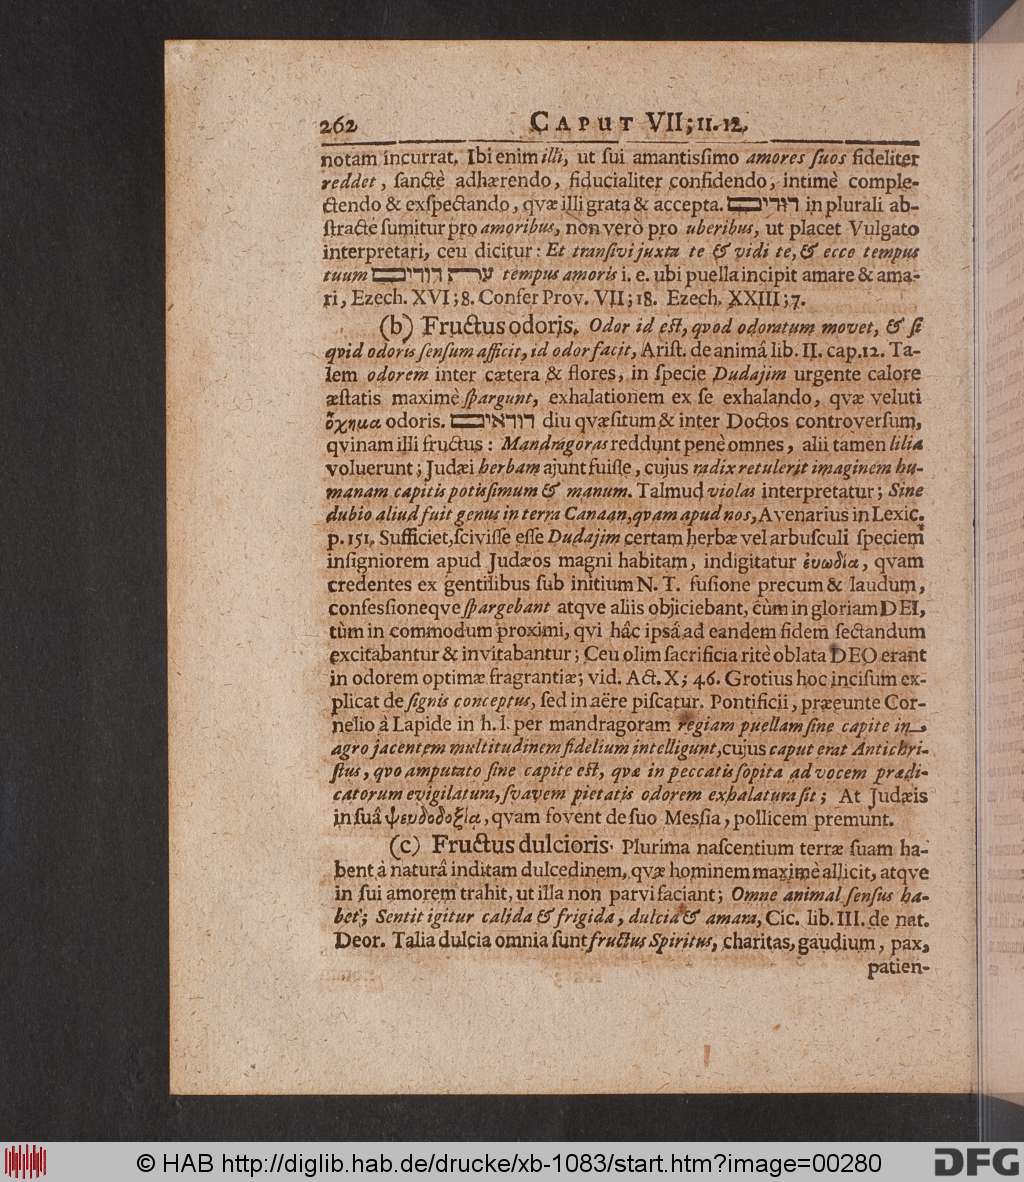 262 CAPUT VII; 11. 12.
notam incurrat. Ibi enim illi, ut ſui amantisſimo amores ſuos fideliter
reddet, ſanctè adhærendo, fiducialiter confidendo, intimè comple-
ctendo & exſpectando, qvæ illi grata & accepta. דודים in plurali ab-
ſtractè ſumitur pro amoribus, non verò pro uberibus, ut placet Vulgato
interpretari, ceu dicitur: Et tranſivi juxta te & vidi te, & ecce tempus
tuum עת דודים tempus amoris i. e. ubi puella incipit amare & ama-
ri, Ezech. XVI; 8. Confer Prov. VII; 18. Ezech. XXIII; 7.
(b) Fructus odoris. Odor id eſt, qvod odoratum movet, & ſi
qvid odoris ſenſum afficit, id odor facit, Ariſt. de animâ lib. II. cap. 12. Ta-
lem odorem inter cætera & flores, in ſpecie Dudajim urgente calore
æſtatis maximè ſpargunt, exhalationem ex ſe exhalando, qvæ veluti
ὄχημα odoris. דודאים diu qvæſitum & inter Doctos controverſum,
qvinam illi fructus: Mandragoras reddunt penè omnes, alii tamen lilia
voluerunt; Judæi herbam ajunt fuiſſe, cujus radix retulerit imaginem hu-
manam capitis potisſimum & manum. Talmud violas interpretatur; Sine
dubio aliud fuit genus in terra Canaan, qvam apud nos, Avenarius in Lexic.
p. 151. Sufficiet, ſciviſſe eſſe Dudajim certam herbæ vel arbuſculi ſpeciem
inſigniorem apud Judæos magni habitam, indigitatur ἐυωδία, qvam
credentes ex gentilibus ſub initium N. T. fuſione precum & laudum,
confesſioneqve ſpargebant atqve aliis objiciebant, cùm in gloriam DEI,
tùm in commodum proximi, qvi hâc ipsâ ad eandem fidem ſectandum
excitabantur & invitabantur; Ceu olim ſacrificia ritè oblata DEO erant
in odorem optimæ fragrantiæ; vid. Act. X; 46. Grotius hoc inciſum ex-
plicat de ſignis conceptus, ſed in aëre piſcatur. Pontificii, præeunte Cor-
nelio à Lapide in h. l. per mandragoram regiam puellam ſine capite in
agro jacentem multitudinem fidelium intelligunt, cujus caput erat Antichri-
ſtus, qvo amputato ſine capite eſt, qvæ in peccatis ſopita ad vocem prædi-
catorum evigilatura, ſvavem pietatis odorem exhalatura ſit; At Judæis
in ſuâ ψευδοδοξία, qvam fovent de ſuo Mesſia, pollicem premunt.
(c) Fructus dulcioris. Plurima naſcentium terræ ſuam ha-
bent à naturâ inditam dulcedinem, qvæ hominem maximè allicit, atqve
in ſui amorem trahit, ut illa non parvi faciant; Omne animal ſenſus ha-
bet; Sentit igitur calida & frigida, dulcia & amara, Cic. lib. III. de nat.
Deor. Talia dulcia omnia ſunt fructus Spiritus, charitas, gaudium, pax,
patien-
© HAB http://diglib.hab.de/drucke/xb-1083/start.htm?image=00280
DFG